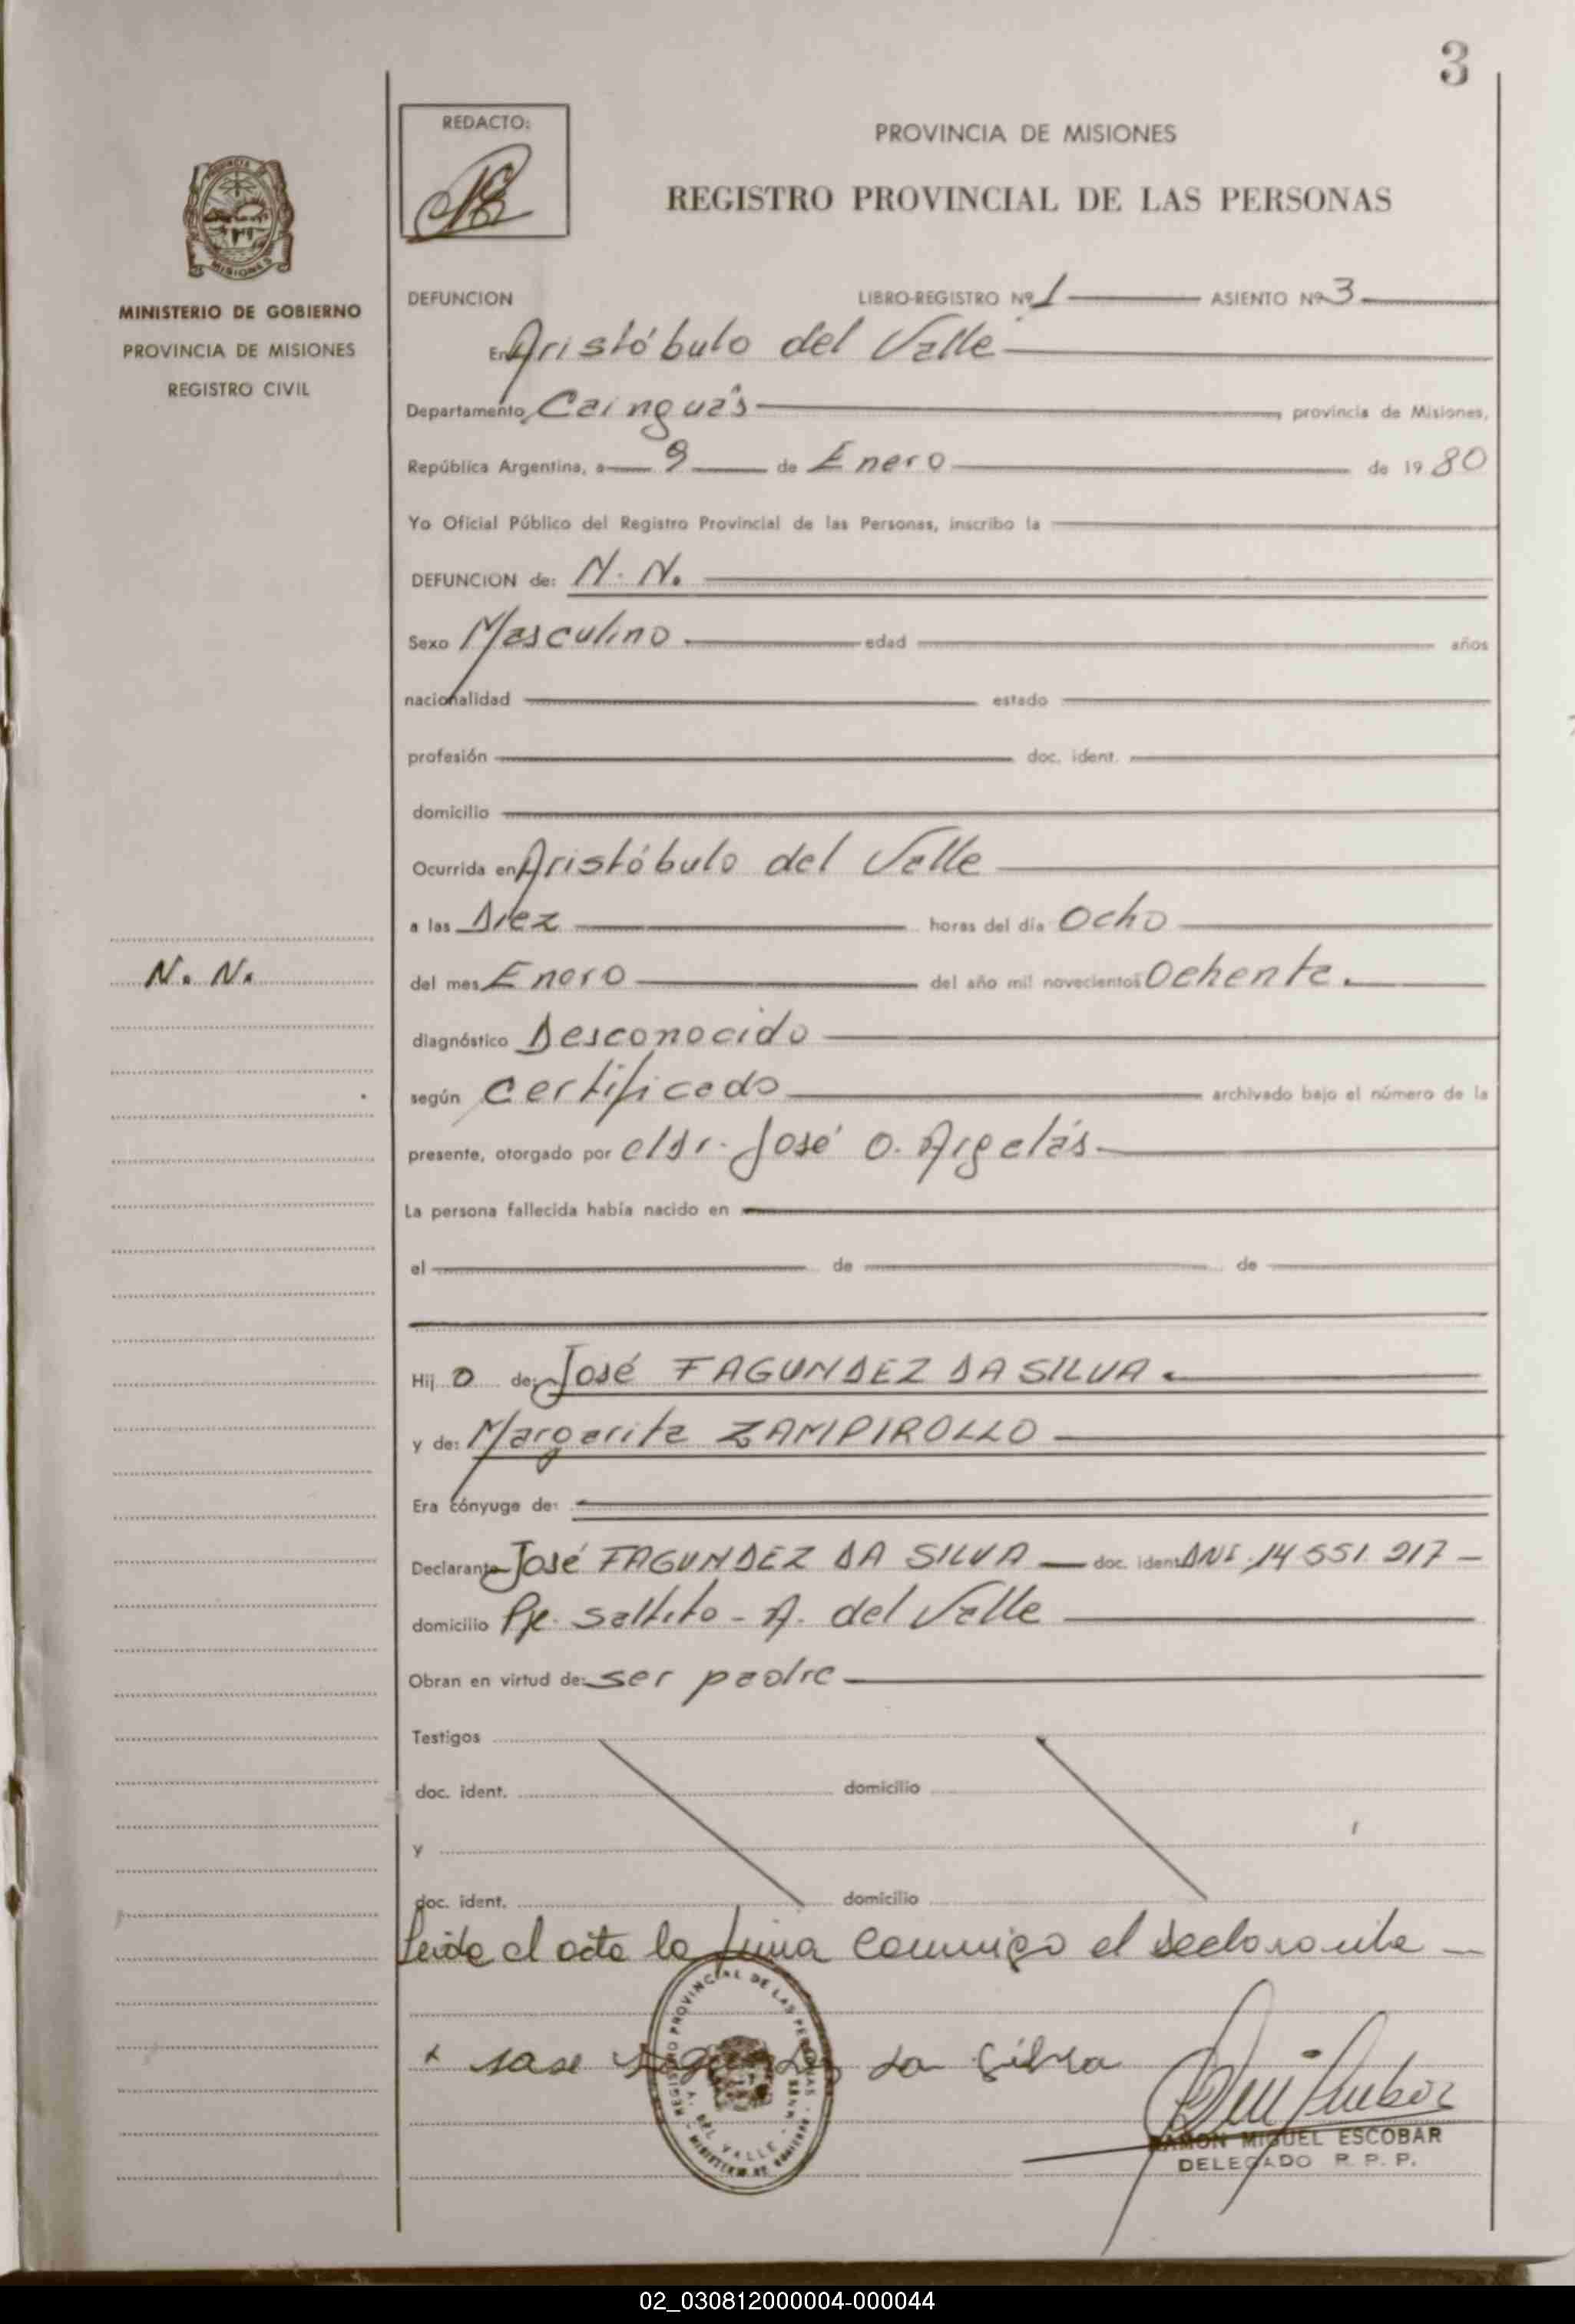 3
REDACTO:
PROVINCIA DE MISIONES
REGISTRO PROVINCIAL DE LAS PERSONAS
MISIONES
MINISTERIO DE GOBIERNO
PROVINCIA DE MISIONES
REGISTRO CIVIL
DEFUNCION LIBRO-REGISTRO Nº 1 ASIENTO Nº 3
En Aristóbulo del Valle
Departamento Cainguás provincia de Misiones,
República Argentina, a 9 de Enero de 19 80
Yo Oficial Público del Registro Provincial de las Personas, inscribo la
DEFUNCION de: N. N.
Sexo Masculino edad años
nacionalidad estado
profesión doc. ident.
domicilio
Ocurrida en Aristóbulo del Valle
a las Diez horas del día Ocho
N. N.
del mes Enero del año mil novecientos Ochenta.
diagnóstico Desconocido
según certificado archivado bajo el número de la
presente, otorgado por el Dr. José O. Argelás
La persona fallecida había nacido en
el de de
Hij o de: José FAGUNDEZ DA SILVA.
y de: Margarita ZAMPIROLLO
Era cónyuge de:
Declarante José FAGUNDEZ DA SILVA doc. ident. DNI. 14 551. 917
domicilio Pje. Saltito - A. del Valle
Obran en virtud de: ser padre
Testigos
doc. ident. domicilio
y
doc. ident. domicilio
Leida el acta la firma conmigo el declarante
da Silva
REGISTRO PROVINCIAL DE LAS PERSONAS
A. DEL VALLE
RAMON MIGUEL ESCOBAR
DELEGADO R. P. P.
02_030812000004-000044